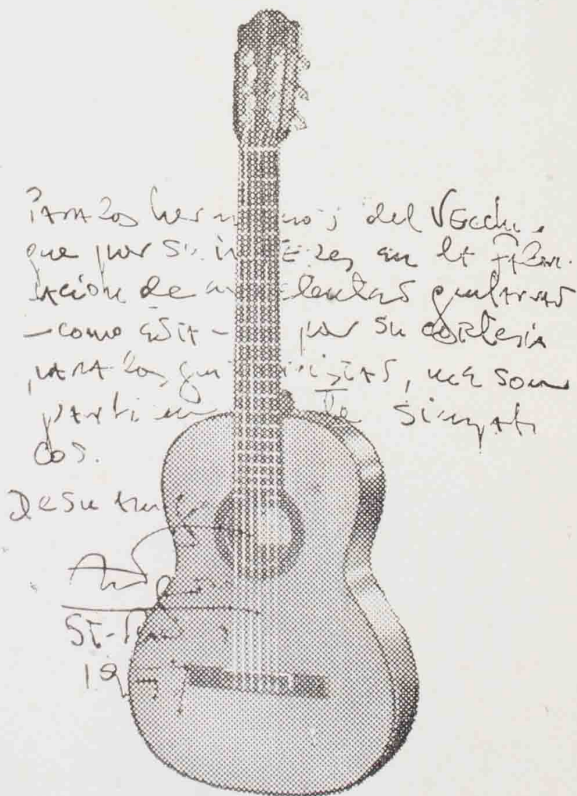 Para los hermanos del Vecchi,
que por su interés en la fabri-
cación de excelentes guitarras
—como ésta— por su cortesía
para los guitarristas, me son
particularmente simpáti
cos.
De su
St-
19